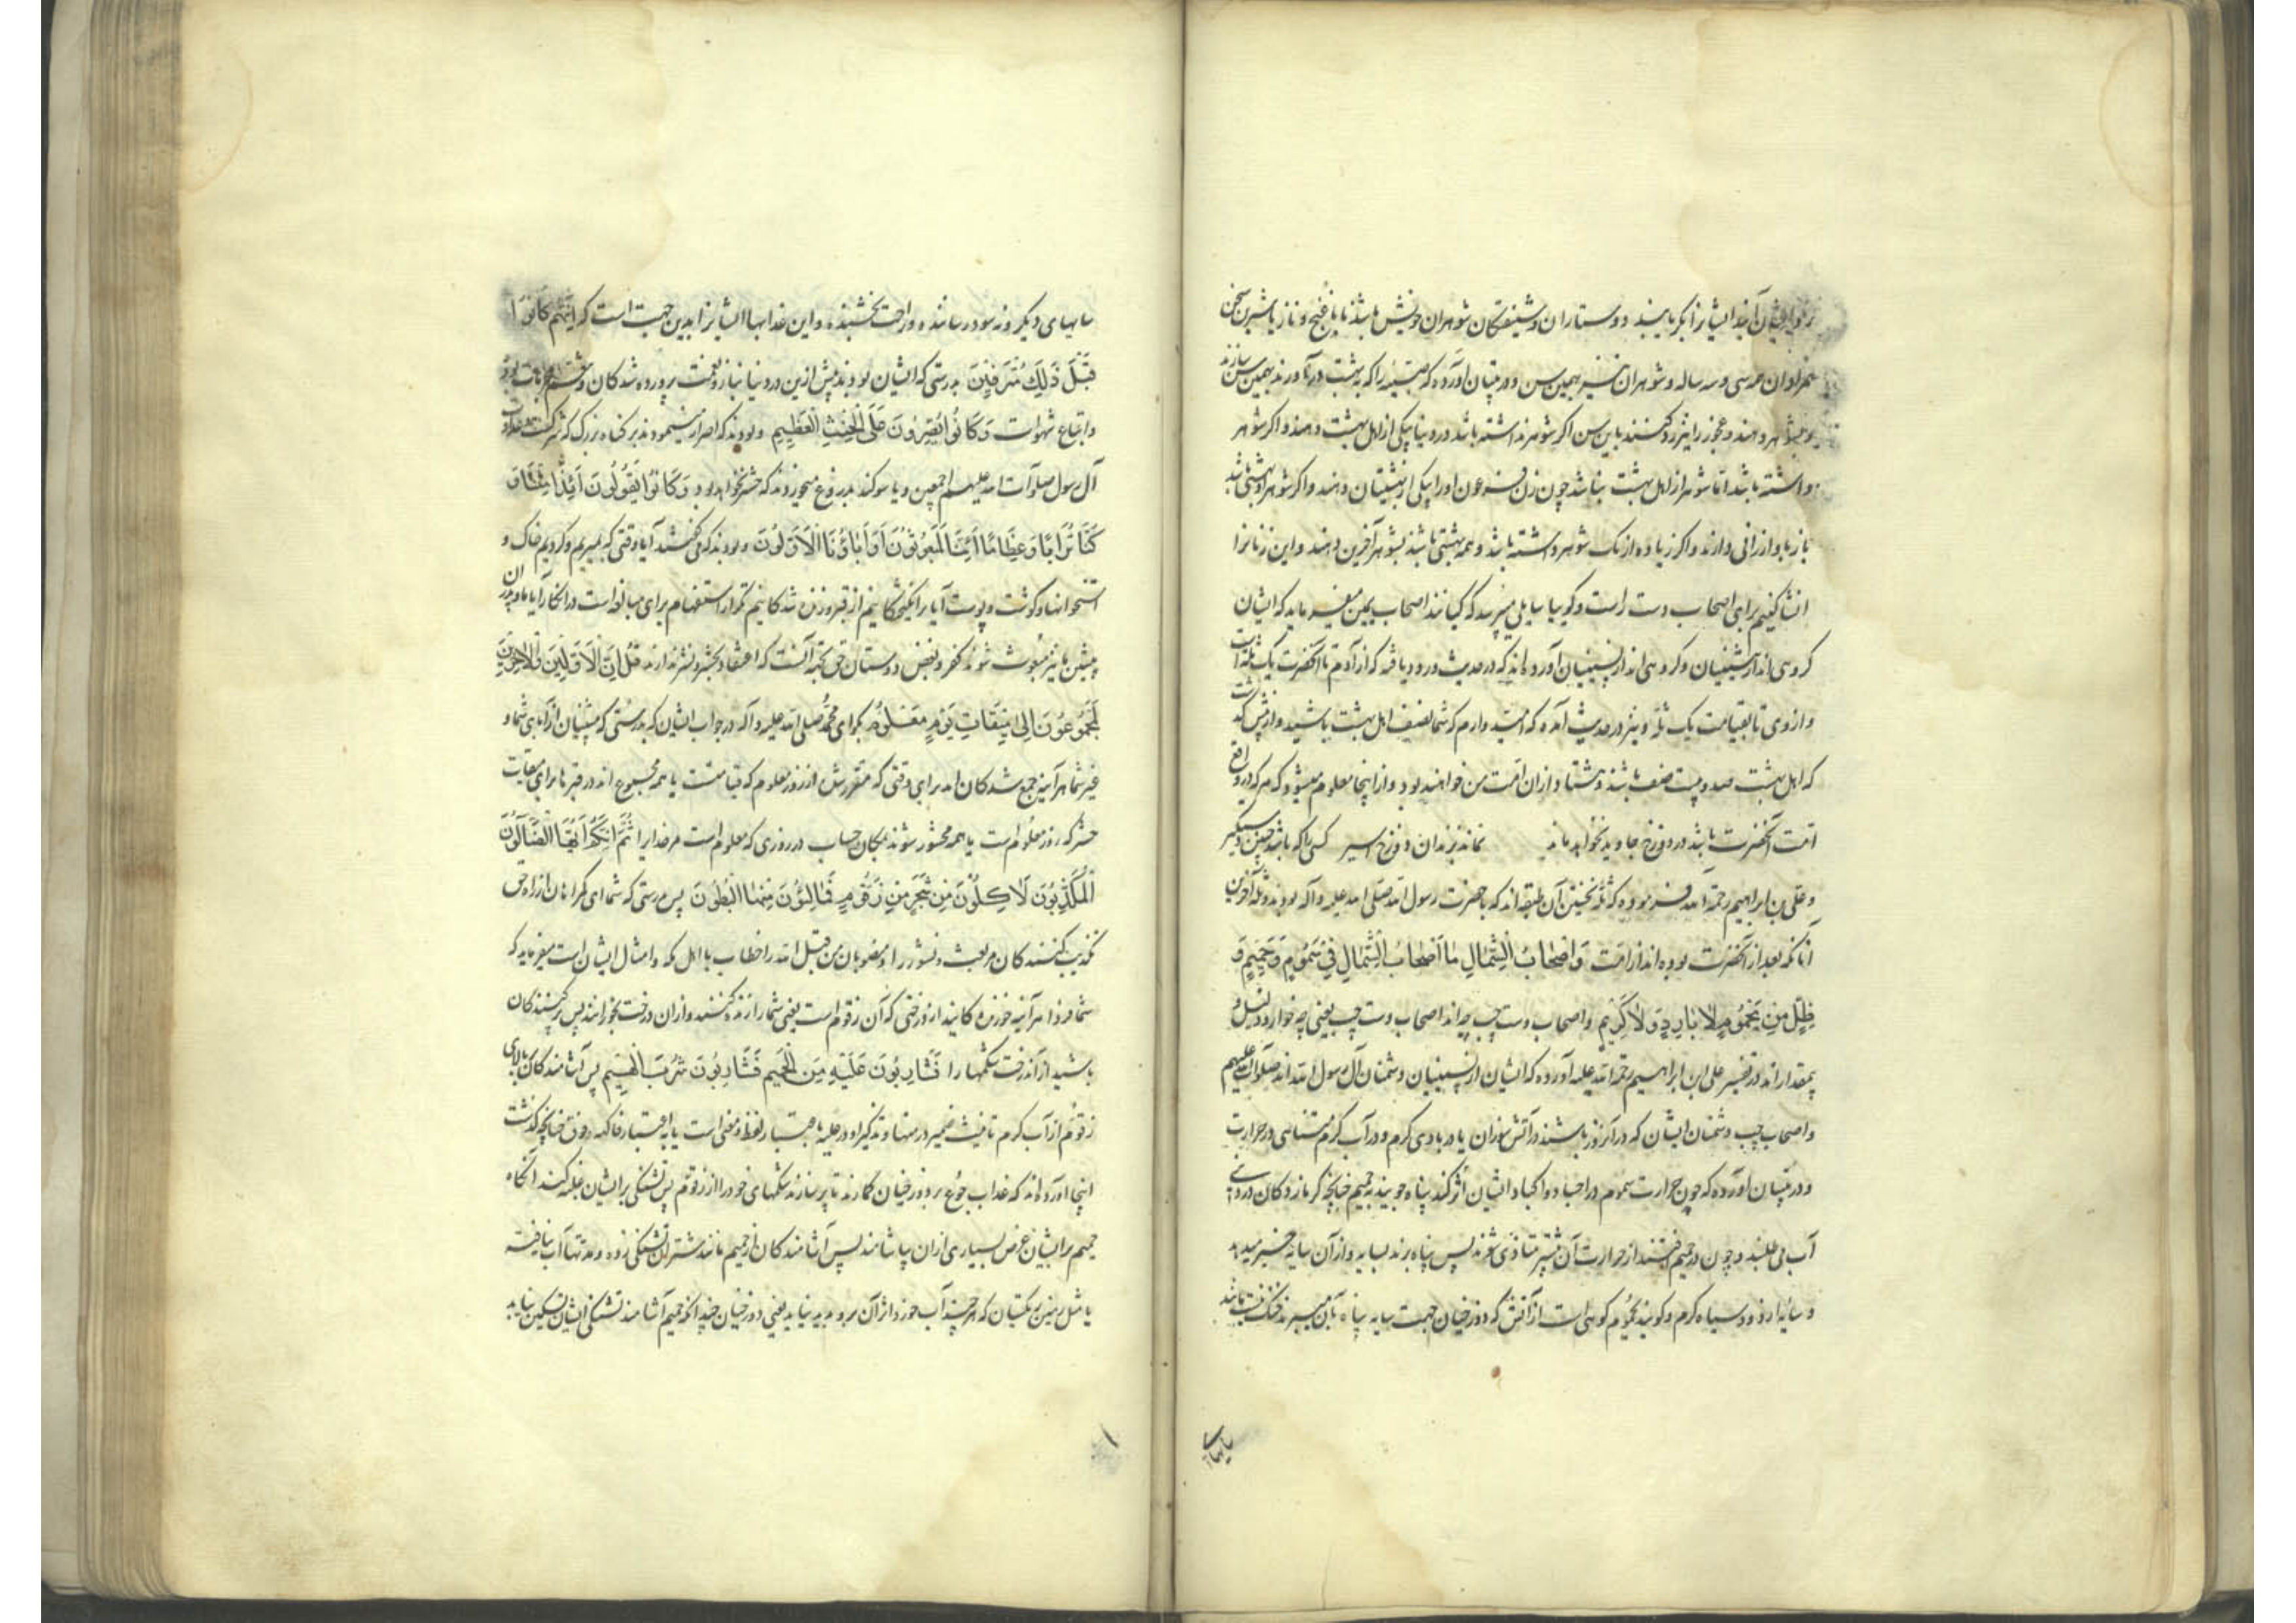 ایشانرا بکر یابند دوستاران و شیفتکان شوهران خویش باشند با غنج و ناز یا شیرین سخن
همزادان همه سی و سه ساله و شوهران نیز بهمین سن و در تبیان آورده که صبیه را که به بهشت درآورند بهمین سن سازند
بشوهر دهند و عجوز را نیز رد کنند باین سن اکر شوهر نداشته باشد در دنیا بیکی از اهل بهشت دهند و اکر شوهر
داشته باشد اما شوهر از اهل بهشت نباشد چون زن فرعون او را بیکی از بهشتیان دهند و اکر شوهر او بهشتی باشد
باز باو ارزانی دارند و اکر زیاده از یک شوهر داشته باشد و همه بهشتی باشند بشوهر آخرین دهند و این زنانرا
انشا کنیم برای اصحاب دست راست و کوییا سایلی میپرسد که کیانند اصحاب یمین میفرماید که ایشان
کروهی اند از پیشینیان و کروهی اند از پسینیان آورده اند که در حدیث ورود یافته که از آدم تا آنحضرت یک ثله است
و از وی تا بقیامت یک ثله و نیز در حدیث آمده که امید دارم که شما نصف اهل بهشت باشید و از پیش کذشت
که اهل بهشت صد و بیست صنف باشند و هشتاد ازان امت من خواهند بود و از اینجا معلوم میشود که هر که در واقع
امت آنحضرت باشد در دوزخ جاوید نخواهد ماند نماند بزندان دوزخ اسیر کسی را که باشد چنین دستکیر
و علی بن ابراهیم رحمة الله فرموده که ثله نخستین آن طبقه اند که با حضرت رسول الله صلی الله علیه وآله بودند و ثله آخرین
آنانکه بعد از آنحضرت بوده اند از امت وَاَصْحَابُ الشِّمَالِ مَا اَصْحَابُ الشِّمَالِ فِی سَمُومٍ وَحَمِیمٍ وَ
ظِلٍّ مِن یَحْمُومٍ لَا بَارِدٍ وَلَا کَرِیمٍ و اصحاب دست چپ چه اند اصحاب دست چپ یعنی چه خوار و ذلیل و
بیمقدار اند در تفسیر علی ابن ابراهیم رحمة الله علیه آورده که ایشان از پسینیان و دشمنان آل رسول الله اند صلوات الله علیهم
و اصحاب چپ دشمنان ایشان که در آنروز باشند در آتش سوزان یا در بادی کرم و در آب کرم متناهی در حرارت
و در تبیان آورده که چون حرارت سموم در اجساد و اکباد ایشان اثر کند پناه جویند بحمیم چنانچه کرمازدکان در دنیا
آب می طلبند و چون در حمیم افتند از حرارت آن بیشتر متاذی شوند پس پناه برند بسایه و از آن سایه خبر میدهد
و سایه از دود سیاه کرم و کویند یحموم کوهی است از آتش که دوزخیان جهت سایه پناه بآن میبرند خنک نباشد
سایهای دیکر و نه سود رساننده و راحت بخشنده و این عذابها ایشانرا بدین جهت است که اِنَّهُمْ کَانُوا
قَبْلَ ذَلِکَ مُتْرَفِینَ بدرستی که ایشان بودند پیش ازین در دنیا بناز و نعمت پرورده شدکان
و اتباع شهوات وَکَانُوا یُصِرُّونَ عَلَی الْحِنْثِ الْعَظِیمِ و بودند که اصرار مینمودند بر کناه بزرک که شرکت و عداوت
آل رسول صلوات الله علیهم اجمعین و یا سوکند بدروغ میخوردند که حشر نخواهد بود وَکَانُوا یَقُولُونَ اَئِذَا مِتْنَا وَ
کُنَّا تُرَابًا وَعِظَامًا اَئِنَّا لَمَبْعُوثُونَ اَوَآبَاؤُنَا الْاَوَّلُونَ و بودند که می کفتند آیا وقتی که بمیریم و کردیم خاک و
استخوانها و کوشت و پوست آیا برانکیختکانیم از قبر و زنده شدکانیم تکرار استفهام برای مبالغه است در انکار آیا ما و پدران
پیشین ما نیز مبعوث شوند کفر و بغض دوستان حق بجهت آنست که اعتقاد بحشر و نشر ندارند قُلْ اِنَّ الْاَوَّلِینَ وَالْآخِرِینَ
لَمَجْمُوعُونَ اِلَی مِیقَاتِ یَوْمٍ مَعْلُومٍ بکو ای محمد صلی الله علیه وآله در جواب ایشان که بدرستی که پیشینیان از آبای شما و
غیر شما هرآینه جمع شدکان اند برای وقتی که مقرر شده از روز معلوم که قیامتست یا همه مجموع اند در قبرها برای میقات
حشر که روز معلوم است یا همه محشور شوند بمکان حساب در روزی که معلوم است مر خدایرا ثُمَّ اِنَّکُمْ اَیُّهَا الضَّالُّونَ
الْمُکَذِّبُونَ لَآکِلُونَ مِن شَجَرٍ مِن زَقُّومٍ فَمَالِؤُنَ مِنْهَا الْبُطُونَ پس بدرستی که شما ای کمراهان از راه حق
تکذیب کنندکان مر بعث و نشور را و مغضوبان من قبل الله را خطاب با اهل مکه و امثال ایشان است میفرماید که
شما فردا هرآینه خورنده کانید از درختی که آن زقوم است یعنی شما را زنده کنند و ازان درخت بخورانند پس پر کنندکان
باشید از آن درخت شکمها را فَشَارِبُونَ عَلَیْهِ مِنَ الْحَمِیمِ فَشَارِبُونَ شُرْبَ الْهِیمِ پس آشامندکان بالای
زقوم از آب کرم تانیث ضمیر در منها و تذکیر او در علیه باعتبار لفظ و معنی است یا به اعتبار چنانچه کذشت
اینجا آورده اند که عذاب جوع بر دوزخیان کمارند تا پر سازند شکمهای خود را از زقوم پس تشنکی بر ایشان غلبه کند آنکاه
حمیم بر ایشان عرض بسیاری ازان بیاشامند پس آشامندکان از حمیم مانند شتران تشنکی زده و مدتها آب نیافته
یا مثل زمین ریکستان که هر چند آب خورد اثر آن برو پدید نیاید یعنی دوزخیان چندانکه حمیم آشامند تشنکی ایشان تسکین نیابد